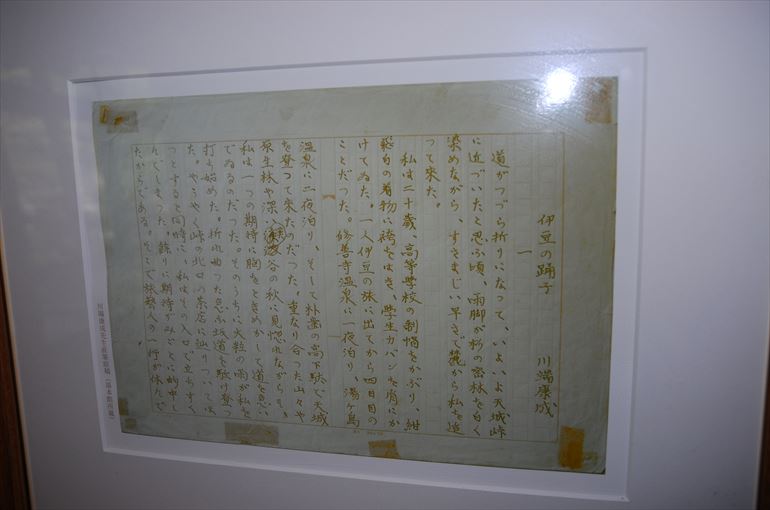 伊豆の踊子
川端康成
一
道がつづら折りになって、いよいよ天城峠
に近づいたと思ふ頃、雨脚が杉の密林を白く
染めながら、すさまじい早さで麓から私を追
って来た。
私は二十歳、高等学校の制帽をかぶり、紺
飛白の着物に袴をはき、学生カバンを肩にか
けてゐた。一人伊豆の旅に出てから四日目の
ことだった。修善寺温泉に一夜泊り、湯ヶ島
温泉に二夜泊り、そして朴歯の高下駄で天城
を登って来たのだった。重なり合った山々や
原生林や深い渓谷の秋に見惚れながらも、
私は一つの期待に胸をときめかして道を急い
でゐるのだった。そのうちに大粒の雨が私を
打ち始めた。折れ曲った急な坂道を駈け登っ
た。やうやく峠の北口の茶店に辿りついてほ
っとすると同時に、私はその入口で立ちすく
んでしまった。余りに期待がみごとに的中し
たからである。そこで旅芸人の一行が休んで
川端康成先生直筆原稿